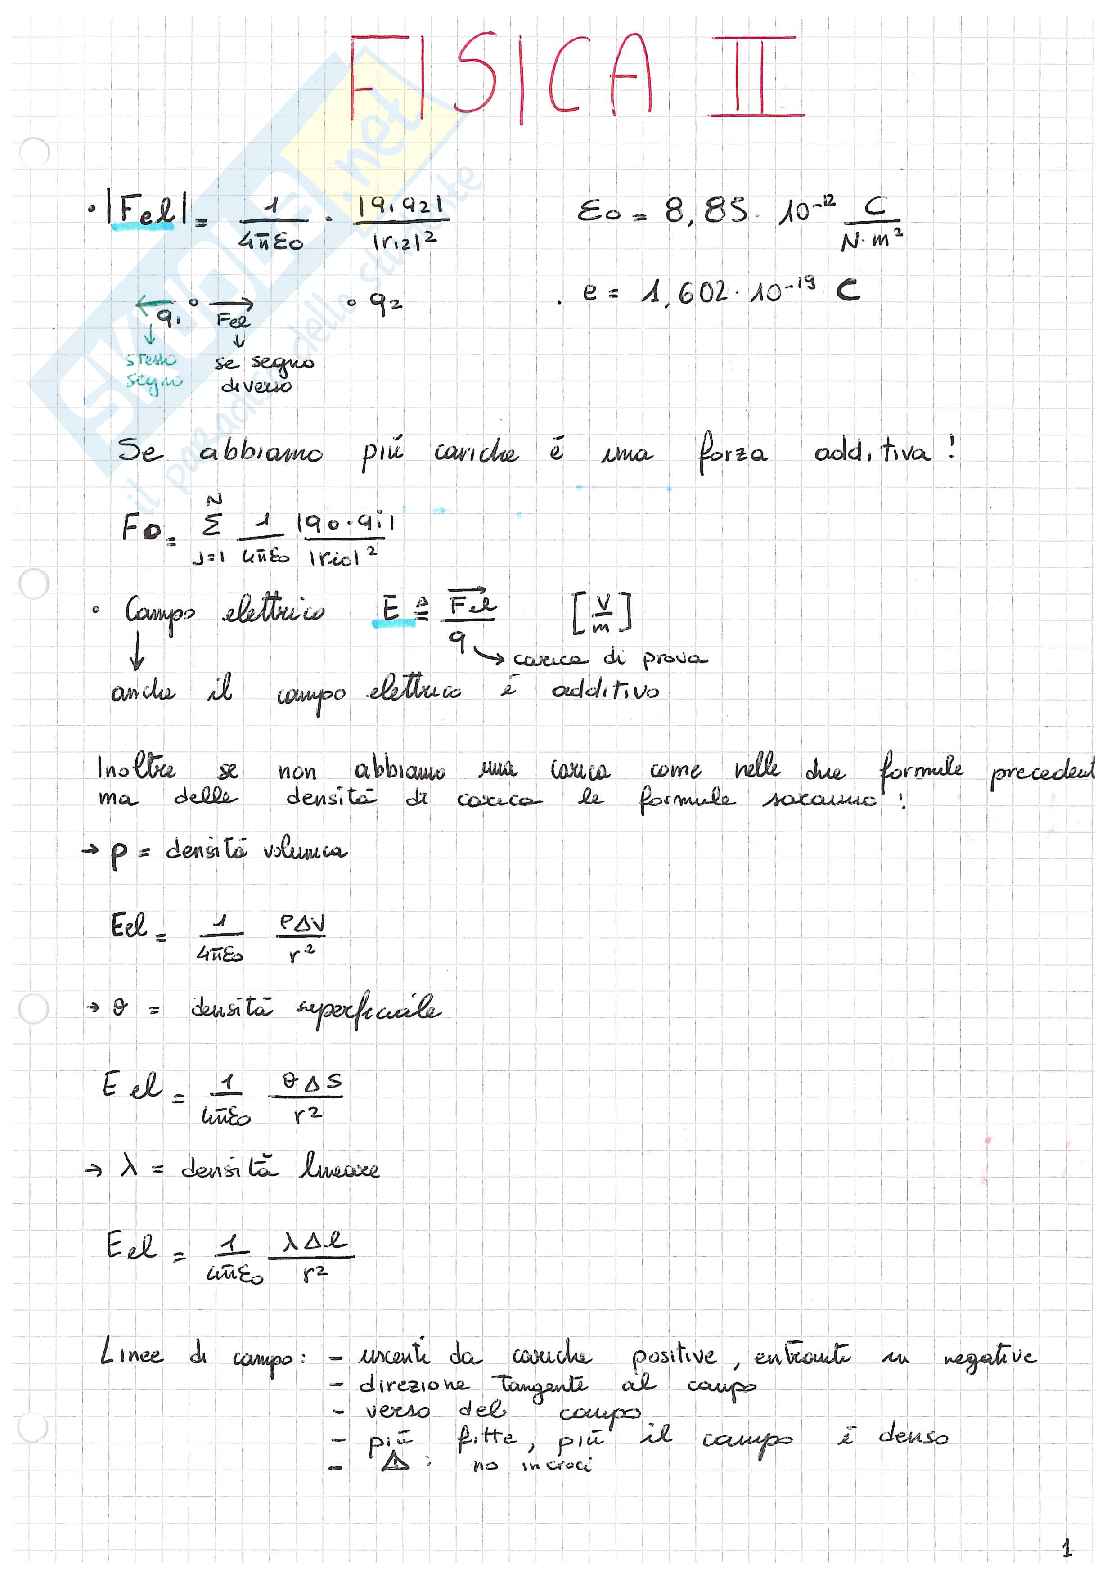 FISICA II
• |Fel| = 1/4πε0 · |q1 q2|/|r12|² ε0 = 8,85 · 10⁻¹² C/N·m²
q1 Fel q2 . e = 1,602 · 10⁻¹⁹ C
stesso segno se segno diverso
Se abbiamo più cariche è una forza additiva!
F0 = N Σ J=1 1/4πε0 |q0·qi|/|ri0|²
• Campo elettrico E ≜ Fel/q [V/m]
→ carica di prova
anche il campo elettrico è additivo
Inoltre se non abbiamo una carica come nelle due formule precedent
ma delle densità di carica le formule saranno:
→ ρ = densità volumica
Eel = 1/4πε0 ρΔV/r²
→ θ = densità superficiale
Eel = 1/4πε0 θΔS/r²
→ λ = densità lineare
Eel = 1/4πε0 λΔl/r²
Linee di campo: - uscenti da cariche positive, entranti in negative
- direzione tangente al campo
- verso del campo
- più fitte, più il campo è denso
- ⚠: no incroci
1
SKUOLA.net
il paradiso dello studente